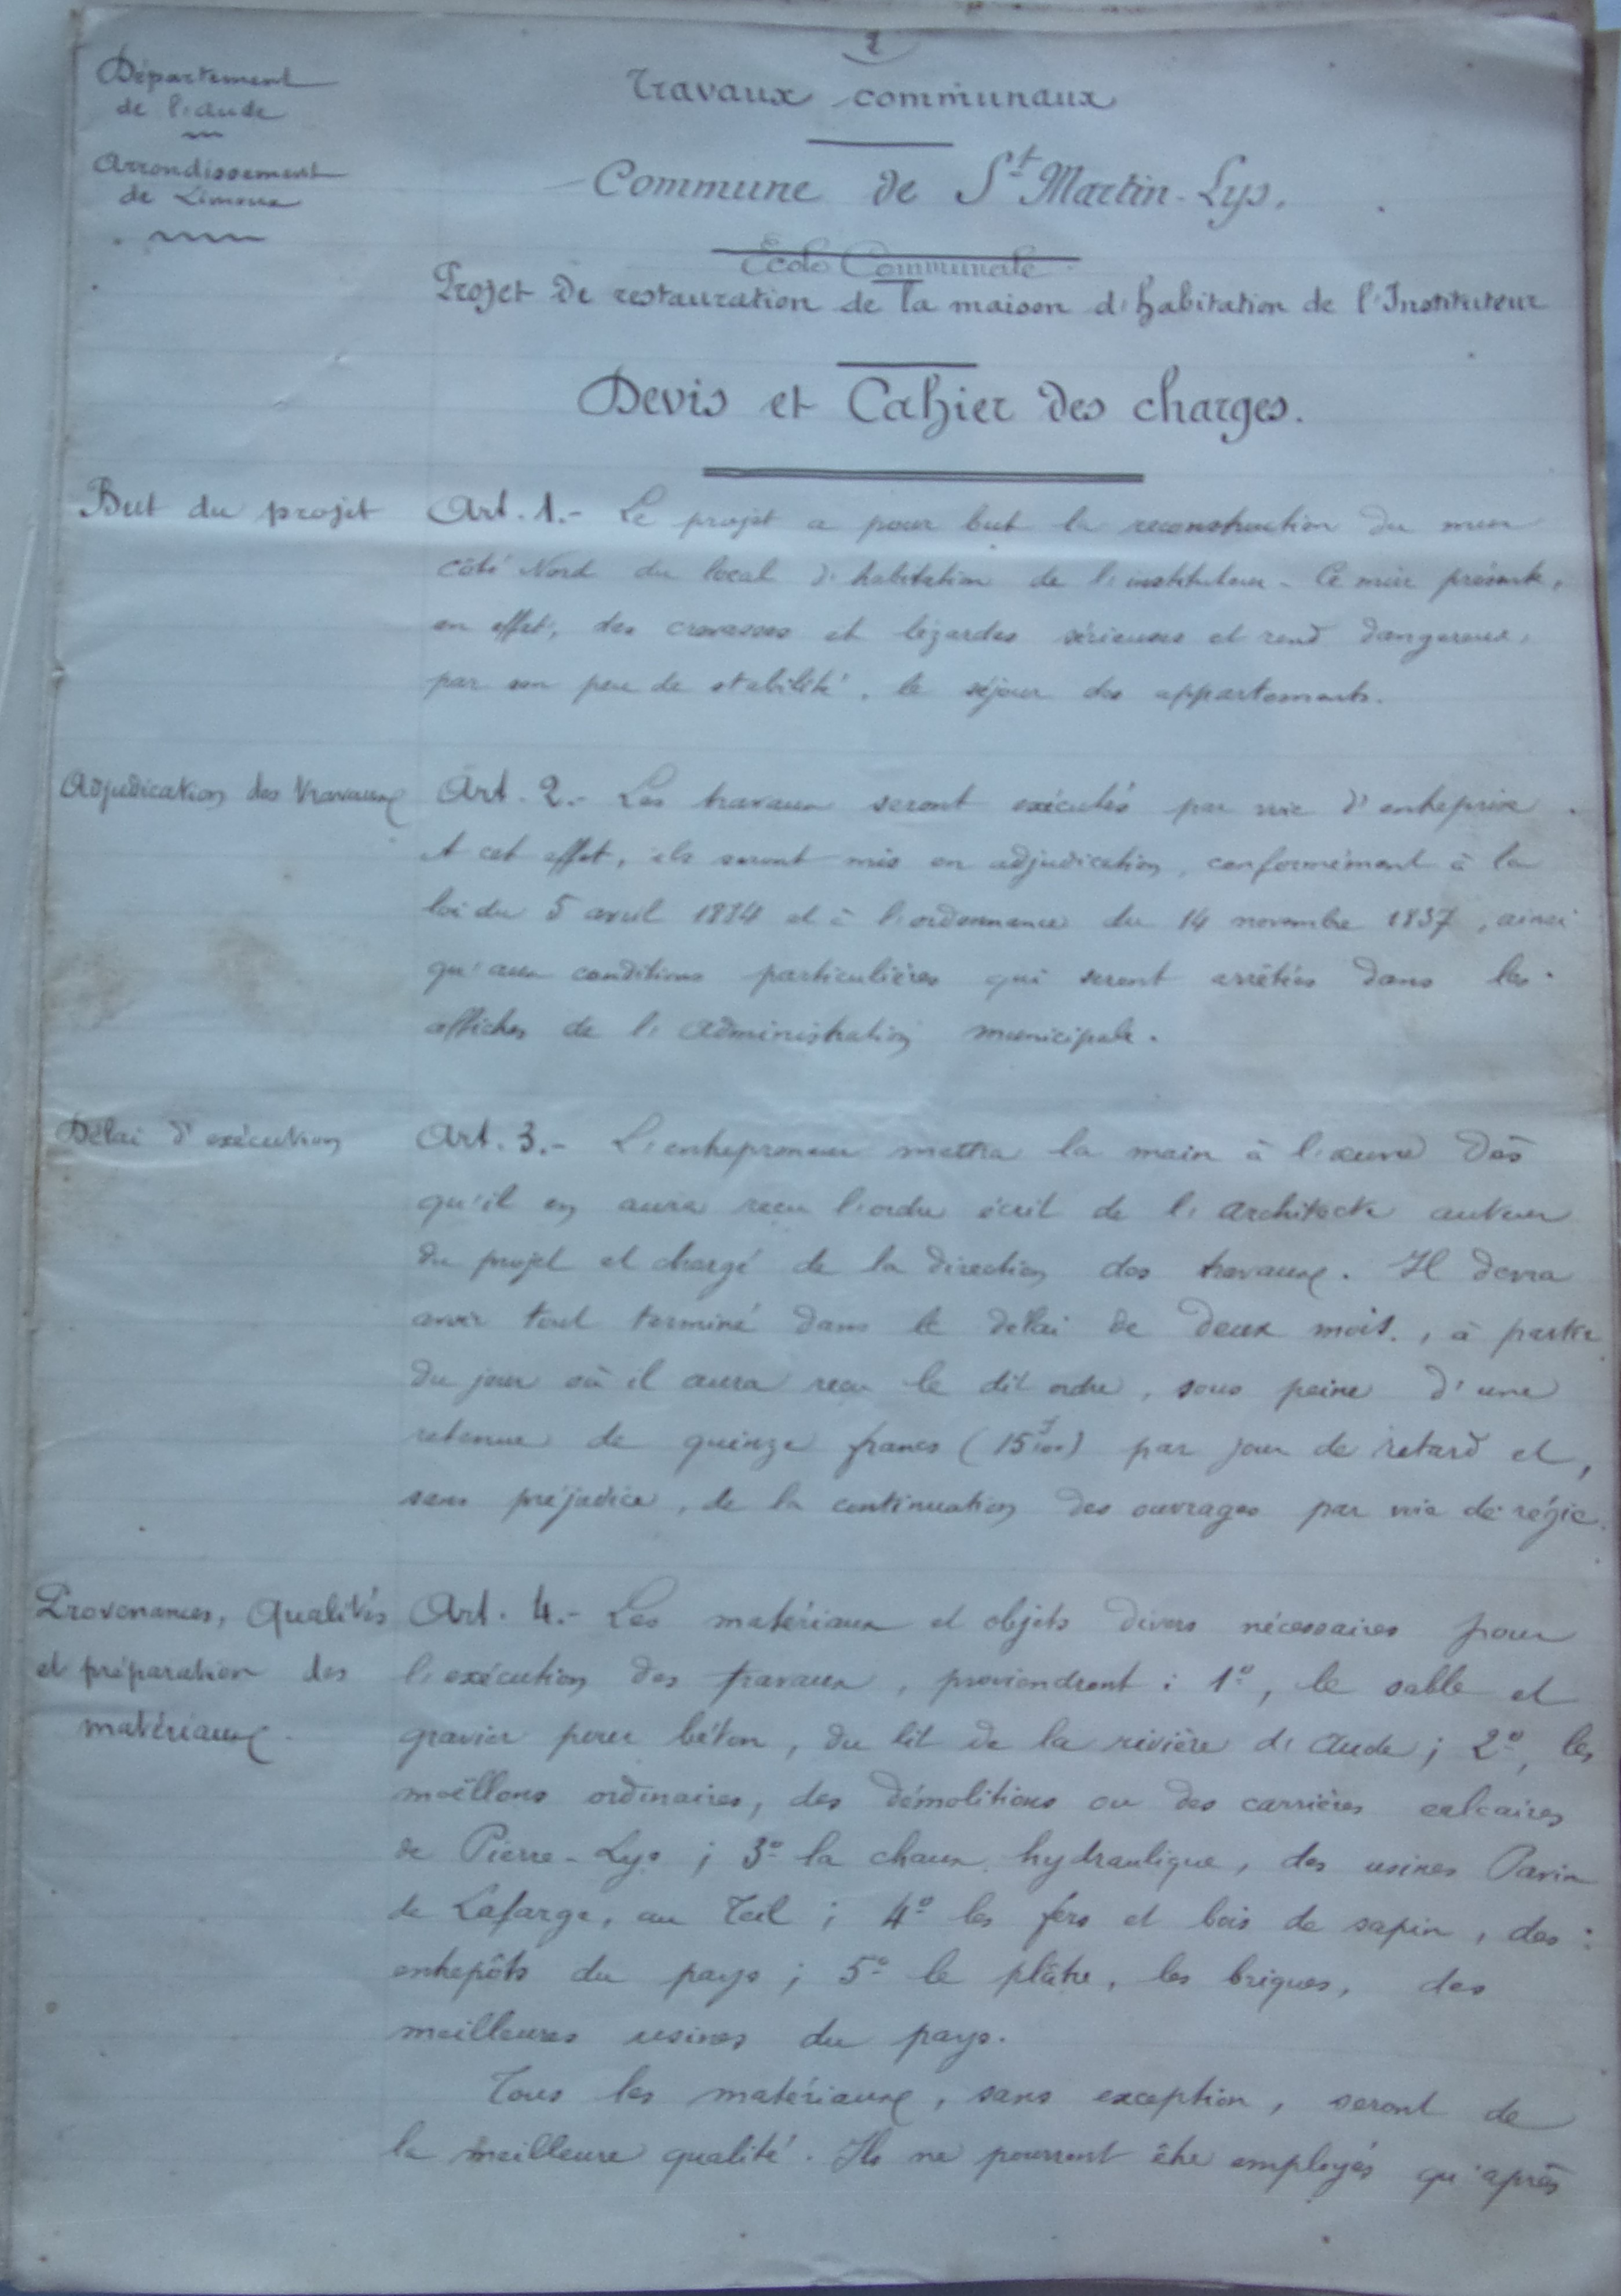 1
Département
de l'Aude
Arrondissement
de Limoux
Travaux communaux
Commune de St Martin-Lys.
Ecole Communale
Projet de restauration de la maison d'habitation de l'Instituteur
Devis et Cahier des charges.
But du projet
Art. 1.- Le projet a pour but la reconstruction du mur
côté Nord du local d'habitation de l'instituteur - Ce mur présente,
en effet, des crevasses et lézardes sérieuses et rend dangereux,
par son peu de stabilité, le séjour des appartements.
Adjudication des travaux
Art. 2.- Les travaux seront exécutés par voie d'entreprise.
A cet effet, ils seront mis en adjudication, conformément à la
loi du 5 avril 1884 et à l'ordonnance du 14 novembre 1837, ainsi
qu'aux conditions particulières qui seront arrêtées dans les
affiches de l'administration municipale.
Délai d'exécution
Art. 3.- L'entrepreneur mettra la main à l'œuvre dès
qu'il en aura reçu l'ordre écrit de l'architecte auteur
du projet et chargé de la direction des travaux. Il devra
avoir tout terminé dans le délai de deux mois, à partir
du jour où il aura reçu le dit ordre, sous peine d'une
retenue de quinze francs (15f,00) par jour de retard et,
sans préjudice, de la continuation des ouvrages par voie de régie.
Provenances, Qualités
et préparation des
matériaux.
Art. 4.- Les matériaux et objets divers nécessaires pour
l'exécution des travaux, proviendront : 1º, le sable et
gravier pour béton, du lit de la rivière d'Aude ; 2º, les
moëllons ordinaires, des démolitions ou des carrières calcaires
de Pierre-Lys ; 3º la chaux hydraulique, des usines Pavin
de Lafarge, au Teil ; 4º les fers et bois de sapin, des
entrepôts du pays ; 5º le plâtre, les briques, des
meilleures usines du pays.
Tous les matériaux, sans exception, seront de
la meilleure qualité. Ils ne pourront être employés qu'après